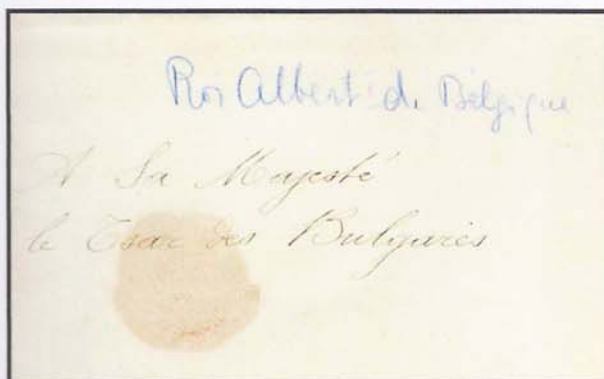 Roi Albert de Belgique
A Sa Majesté
le Tsar des Bulgares